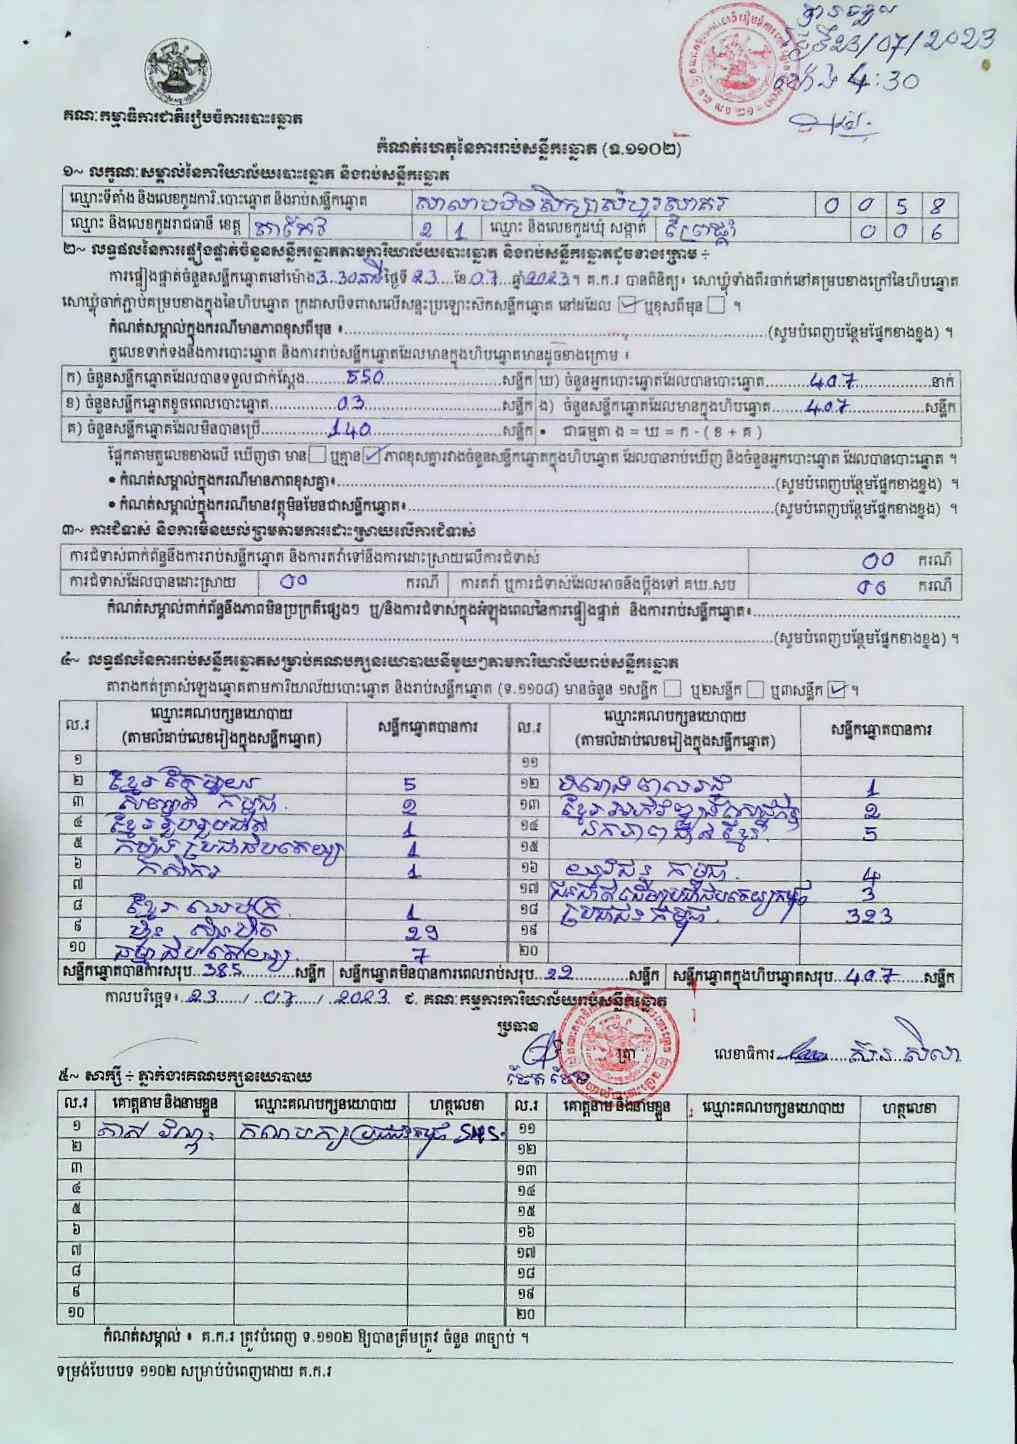 បានទទួល
ថ្ងៃទី23/07/2023
ម៉ោង 4:30
គណៈកម្មាធិការជាតិរៀបចំការបោះឆ្នោត
កំណត់ហេតុនៃការរាប់សន្លឹកឆ្នោត (ទ.១១០២)
១~ លក្ខណៈសម្គាល់នៃការិយាល័យបោះឆ្នោត និងរាប់សន្លឹកឆ្នោត
ឈ្មោះទីតាំង និងលេខកូដការិ.បោះឆ្នោត និងរាប់សន្លឹកឆ្នោត 0 0 5 8
ឈ្មោះ និងលេខកូដរាជធានី ខេត្ត តាកែវ 2 1 ឈ្មោះ និងលេខកូដឃុំ សង្កាត់ ព្រៃផ្គាំ 0 0 6
២~ លទ្ធផលនៃការផ្ទៀងផ្ទាត់ចំនួនសន្លឹកឆ្នោតតាមការិយាល័យបោះឆ្នោត និងរាប់សន្លឹកឆ្នោតដូចខាងក្រោម ÷
ការផ្ទៀងផ្ទាត់ចំនួនសន្លឹកឆ្នោតនៅម៉ោង3.30នាទីថ្ងៃទី23...ខែ07..ឆ្នាំ2023។ គ.ក.រ បានពិនិត្យ៖ សោឃ្លុំទាំងពីរចាក់នៅគម្របខាងក្រៅនៃហិបឆ្នោត
សោឃ្លុំចាក់ភ្ជាប់គម្របខាងក្នុងនៃហិបឆ្នោត ក្រដាសបិទពាសលើសន្ទះប្រឡោះស៊កសន្លឹកឆ្នោត នៅដដែល ☑ ឬខុសពីមុន ☐ ។
កំណត់សម្គាល់ក្នុងករណីមានភាពខុសពីមុន ៖.....(សូមបំពេញបន្ថែមផ្នែកខាងខ្នង) ។
តួលេខទាក់ទងនឹងការបោះឆ្នោត និងការរាប់សន្លឹកឆ្នោតដែលមានក្នុងហិបឆ្នោតមានដូចខាងក្រោម ៖
ក) ចំនួនសន្លឹកឆ្នោតដែលបានទទួលជាក់ស្តែង.....550.....សន្លឹក ឃ) ចំនួនអ្នកបោះឆ្នោតដែលបានបោះឆ្នោត.....407.....នាក់
ខ) ចំនួនសន្លឹកឆ្នោតខូចពេលបោះឆ្នោត.....03.....សន្លឹក ង) ចំនួនសន្លឹកឆ្នោតដែលមានក្នុងហិបឆ្នោត.....407.....សន្លឹក
គ) ចំនួនសន្លឹកឆ្នោតដែលមិនបានប្រើ.....140.....សន្លឹក • ជាធម្មតា ង = ឃ = ក - ( ខ + គ )
ផ្អែកតាមតួលេខខាងលើ ឃើញថា មាន ☐ ឬគ្មាន ☑ ភាពខុសគ្នារវាងចំនួនសន្លឹកឆ្នោតក្នុងហិបឆ្នោត ដែលបានរាប់ឃើញ និងចំនួនអ្នកបោះឆ្នោត ដែលបានបោះឆ្នោត ។
• កំណត់សម្គាល់ក្នុងករណីមានភាពខុសគ្នា៖.....(សូមបំពេញបន្ថែមផ្នែកខាងខ្នង) ។
• កំណត់សម្គាល់ក្នុងករណីមានវត្ថុមិនមែនជាសន្លឹកឆ្នោត៖.....(សូមបំពេញបន្ថែមផ្នែកខាងខ្នង) ។
៣~ ការជំទាស់ និងការមិនយល់ព្រមតាមការដោះស្រាយលើការជំទាស់
ការជំទាស់ពាក់ព័ន្ធនឹងការរាប់សន្លឹកឆ្នោត និងការតវ៉ាទៅនឹងការដោះស្រាយលើការជំទាស់ 00 ករណី
ការជំទាស់ដែលបានដោះស្រាយ 00 ករណី ការតវ៉ា ឬការជំទាស់ដែលអាចនឹងប្តឹងទៅ គឃ.សប 00 ករណី
កំណត់សម្គាល់ពាក់ព័ន្ធនឹងភាពមិនប្រក្រតីផ្សេងៗ ឬ/និងការជំទាស់ក្នុងអំឡុងពេលនៃការផ្ទៀងផ្ទាត់ និងការរាប់សន្លឹកឆ្នោត៖.....
.....(សូមបំពេញបន្ថែមផ្នែកខាងខ្នង) ។
៤~ លទ្ធផលនៃការរាប់សន្លឹកឆ្នោតសម្រាប់គណបក្សនយោបាយនីមួយៗតាមការិយាល័យរាប់សន្លឹកឆ្នោត
តារាងកត់ត្រាសំឡេងឆ្នោតតាមការិយាល័យបោះឆ្នោត និងរាប់សន្លឹកឆ្នោត (ទ.១១០៨) មានចំនួន ១សន្លឹក ☐ ឬ២សន្លឹក ☐ ឬ៣សន្លឹក ☑ ។
ល.រ ឈ្មោះគណបក្សនយោបាយ (តាមលំដាប់លេខរៀងក្នុងសន្លឹកឆ្នោត) សន្លឹកឆ្នោតបានការ ល.រ ឈ្មោះគណបក្សនយោបាយ (តាមលំដាប់លេខរៀងក្នុងសន្លឹកឆ្នោត) សន្លឹកឆ្នោតបានការ
១ ១១
២ ខ្មែរតែមួយ 5 ១២ 1
៣ សំបុកឃ្មុំ កម្ពុជា 2 ១៣ ខ្មែរអភិវឌ្ឍន៍សេដ្ឋកិច្ច 2
៤ ខ្មែររួបរួមជាតិ 1 ១៤ ឯកភាពជាតិខ្មែរ 5
៥ កម្លាំងប្រជាធិបតេយ្យ 1 ១៥
៦ កសិករ 1 ១៦ យុវជន កម្ពុជា 4
៧ ១៧ ជនជាតិដើមប្រជាធិបតេយ្យកម្ពុជា 3
៨ ខ្មែរ 1 ១៨ ប្រជាជនកម្ពុជា 323
៩ ហ៊្វុនស៊ិនប៉ិច 29 ១៩
១០ ធម្មាធិបតេយ្យ 7 ២០
សន្លឹកឆ្នោតបានការសរុប..385.....សន្លឹក សន្លឹកឆ្នោតមិនបានការពេលរាប់សរុប..22.....សន្លឹក សន្លឹកឆ្នោតក្នុងហិបឆ្នោតសរុប..407.....សន្លឹក
កាលបរិច្ឆេទ៖..23...../..07.../..2023 ជ. គណៈកម្មការការិយាល័យរាប់សន្លឹកឆ្នោត
ប្រធាន
ត្រា លេខាធិការ
៥~ សាក្សី ÷ ភ្នាក់ងារគណបក្សនយោបាយ
ល.រ គោត្តនាម និងនាមខ្លួន ឈ្មោះគណបក្សនយោបាយ ហត្ថលេខា ល.រ គោត្តនាម និងនាមខ្លួន ឈ្មោះគណបក្សនយោបាយ ហត្ថលេខា
១ គណបក្សប្រជាជនកម្ពុជា ១១
២ ១២
៣ ១៣
៤ ១៤
៥ ១៥
៦ ១៦
៧ ១៧
៨ ១៨
៩ ១៩
១០ ២០
កំណត់សម្គាល់ ៖ គ.ក.រ ត្រូវបំពេញ ទ.១១០២ ឱ្យបានត្រឹមត្រូវ ចំនួន ៣ច្បាប់ ។
ទម្រង់បែបបទ ១១០២ សម្រាប់បំពេញដោយ គ.ក.រ